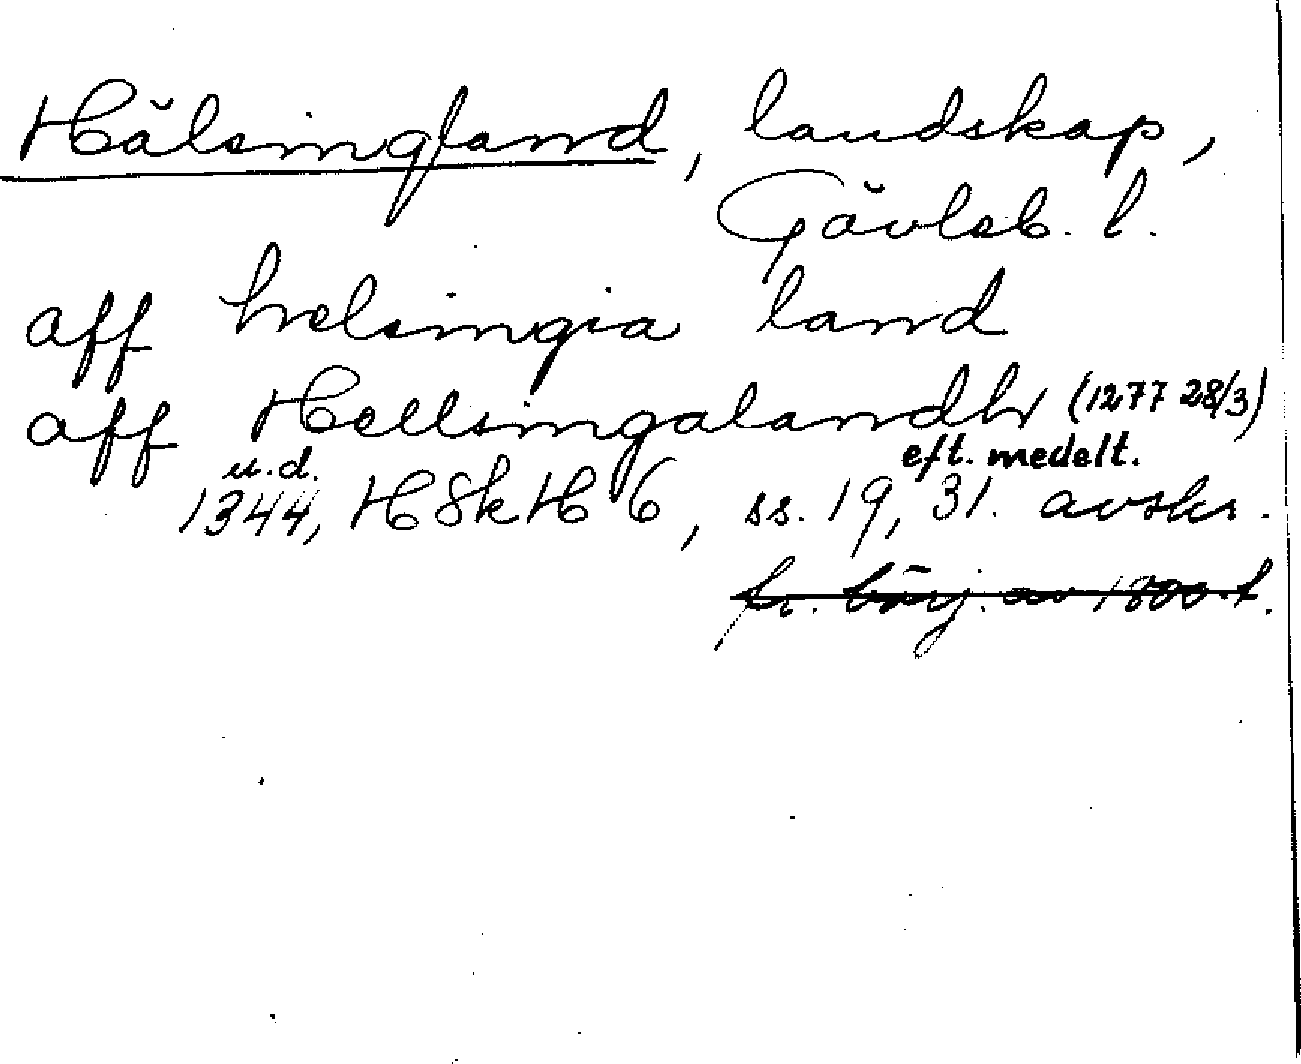 Hälsingland, landskap,
Gävleb. l.
aff helsingia land
aff Hellsingalandh (1277 28/3)
u.d. eft. medelt.
1344, HSkH 6, ss. 19, 31. avskr.
fr. börj. av 1800-t.